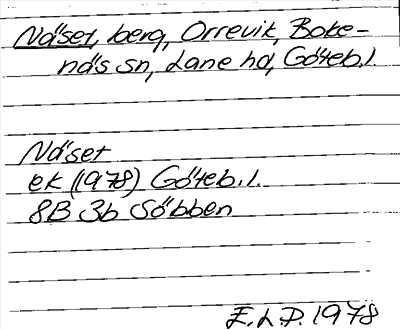 Näset, berg, Orrevik, Boke-
näs sn, Lane hd, Göteb.l.
Näset
ek (1978) Göteb.l.
8B 3b Söbben
E.L.P. 1978